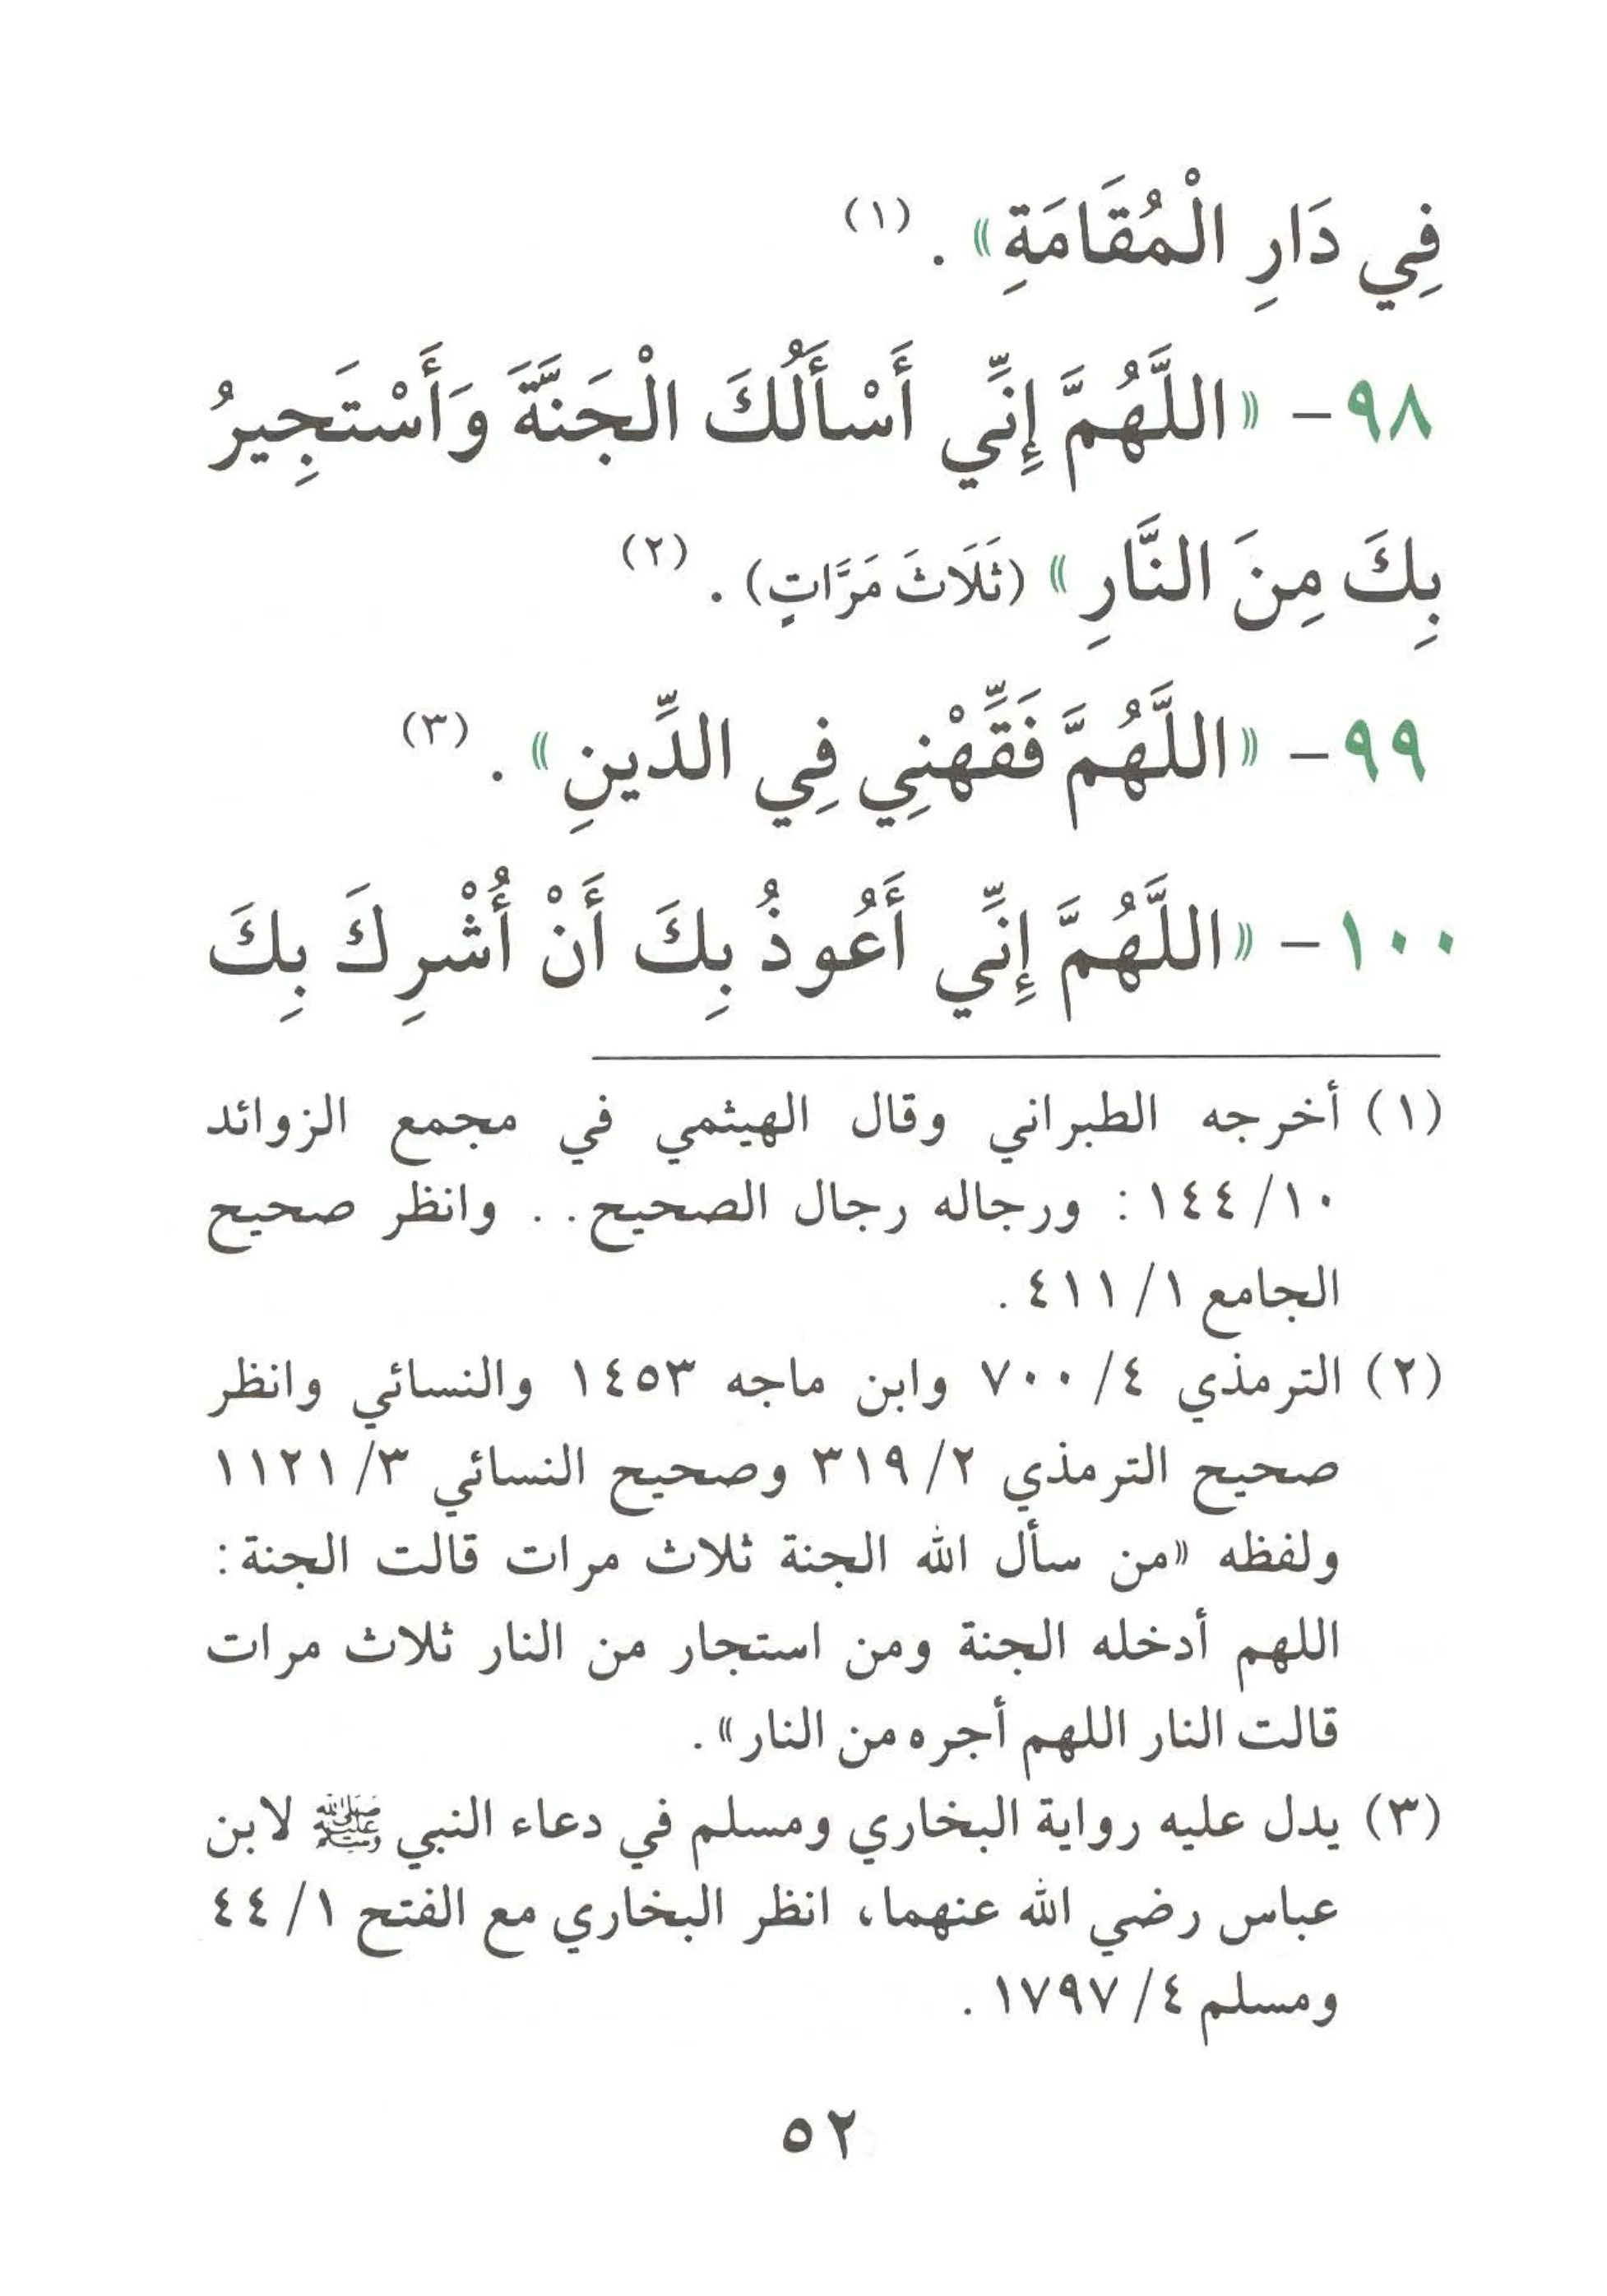 فِي دَارِ الْمُقَامَةِ» . (١)
٩٨- «اللَّهُمَّ إِنِّي أَسْأَلُكَ الْجَنَّةَ وَأَسْتَجِيرُ
بِكَ مِنَ النَّارِ» (ثَلَاثَ مَرَّاتٍ) . (٢)
٩٩- «اللَّهُمَّ فَقِّهْنِي فِي الدِّينِ» . (٣)
١٠٠- «اللَّهُمَّ إِنِّي أَعُوذُ بِكَ أَنْ أُشْرِكَ بِكَ
(١) أخرجه الطبراني وقال الهيثمي في مجمع الزوائد
١٠/ ١٤٤ : ورجاله رجال الصحيح . . وانظر صحيح
الجامع ١/ ٤١١ .
(٢) الترمذي ٤/ ٧٠٠ وابن ماجه ١٤٥٣ والنسائي وانظر
صحيح الترمذي ٢/ ٣١٩ وصحيح النسائي ٣/ ١١٢١
ولفظه «من سأل الله الجنة ثلاث مرات قالت الجنة :
اللهم أدخله الجنة ومن استجار من النار ثلاث مرات
قالت النار اللهم أجره من النار» .
(٣) يدل عليه رواية البخاري ومسلم في دعاء النبي ﷺ لابن
عباس رضي الله عنهما، انظر البخاري مع الفتح ١/ ٤٤
ومسلم ٤/ ١٧٩٧ .
٥٢